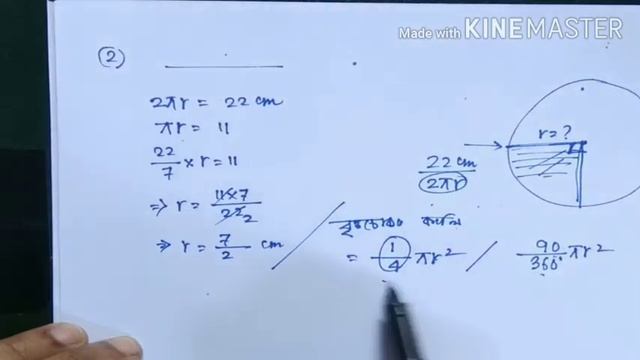 Made with KINEMASTER
(2)
2πr = 22 cm
πr = 11
22/7 × r = 11
⇒ r = 11×7/22 2
⇒ r = 7/2 cm
r = ?
22 cm / 2πr
= 1/4 πr² / 90/360° πr²